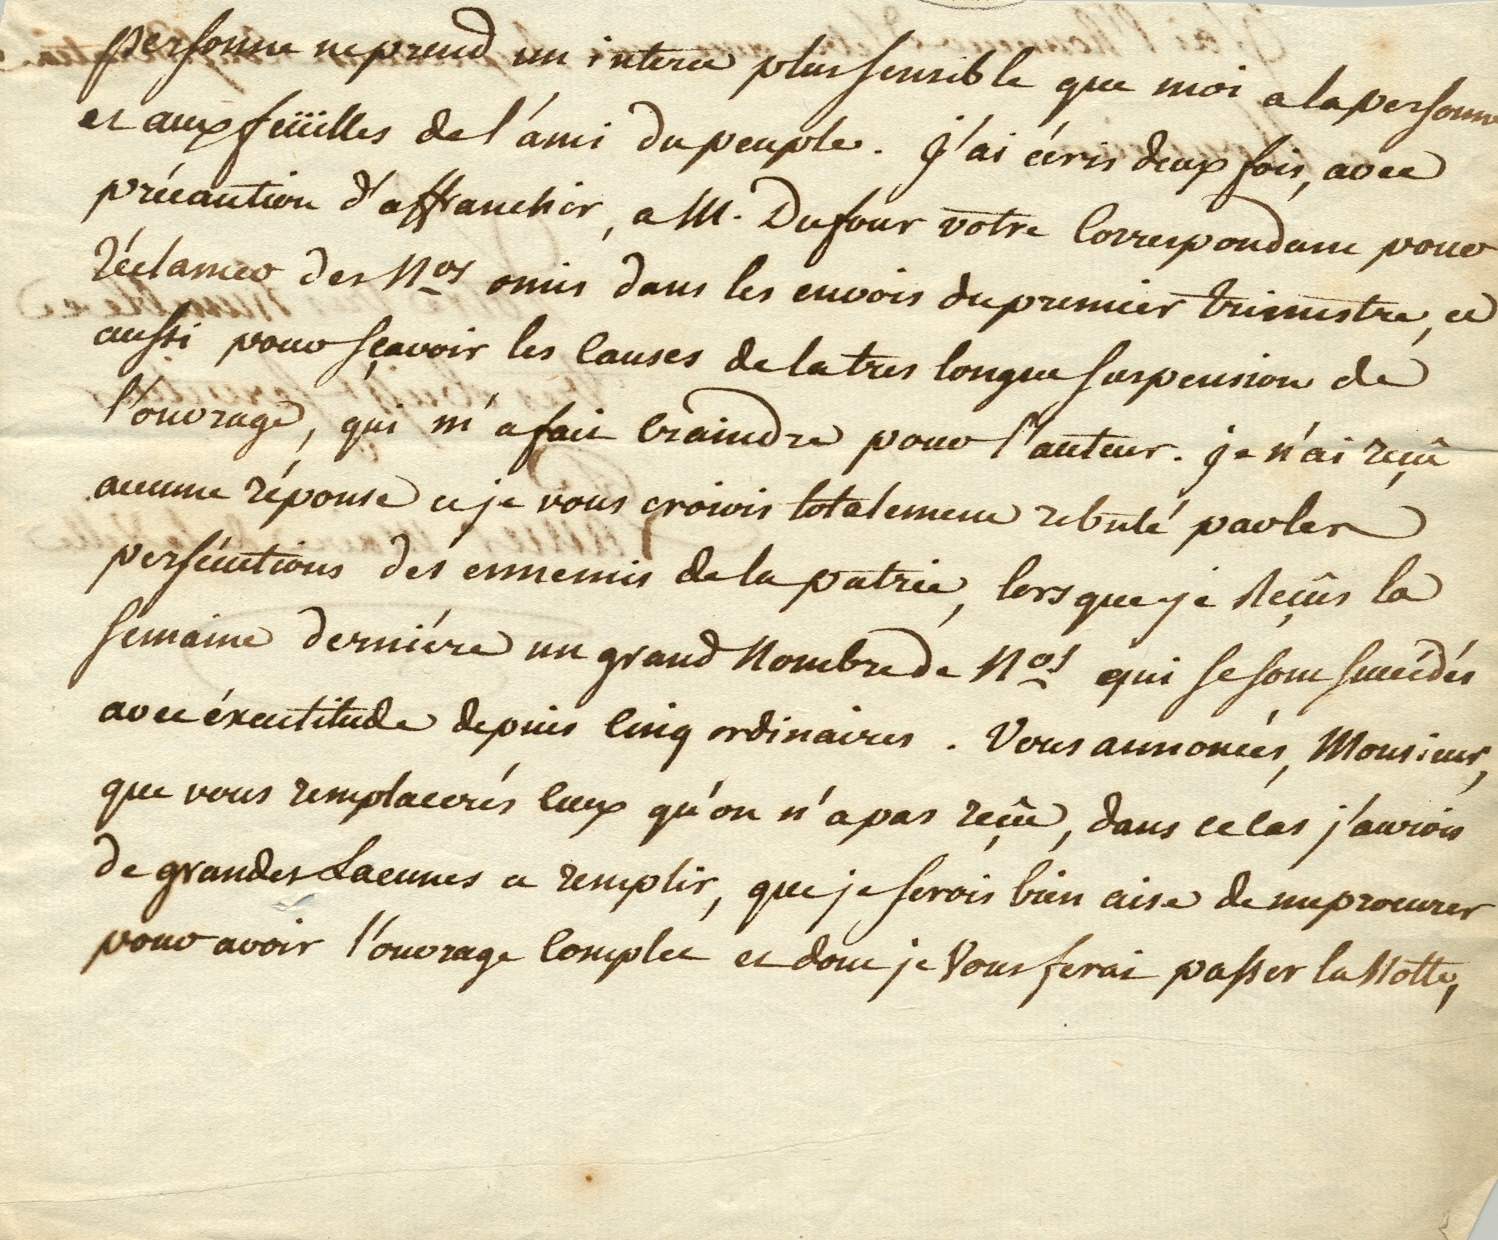 personne ne prend un interet plus sensible que moi a la personne
et aux feüilles de l'ami du peuple. J'ai écris deux fois, avec
précaution d'affranchir, a M. Dufour votre Correspondant pour
réclamer des Nos omis dans les envois du premier trimestre, et
aussi pour sçavoir les Causes de la tres longue suspension de
l'ouvrage, qui m'a fait Craindre pour l'auteur. Je n'ai reçû
aucune réponse et je vous croiois totalement rebuté par les
persécutions des ennemis de la patrie, lorsque je Reçûs la
semaine derniére un grand Nombre de Nos qui se sont succédés
avec éxactitude depuis Cinq ordinaires. Vous annoncés, Monsieur,
que vous remplacerés Ceux qu'on n'a pas reçû, dans ce Cas j'aurois
de grandes Lacunes a remplir, que je serois bien aise de me procurer
pour avoir l'ouvrage Complet et dont je Vous ferai passer la Notte,